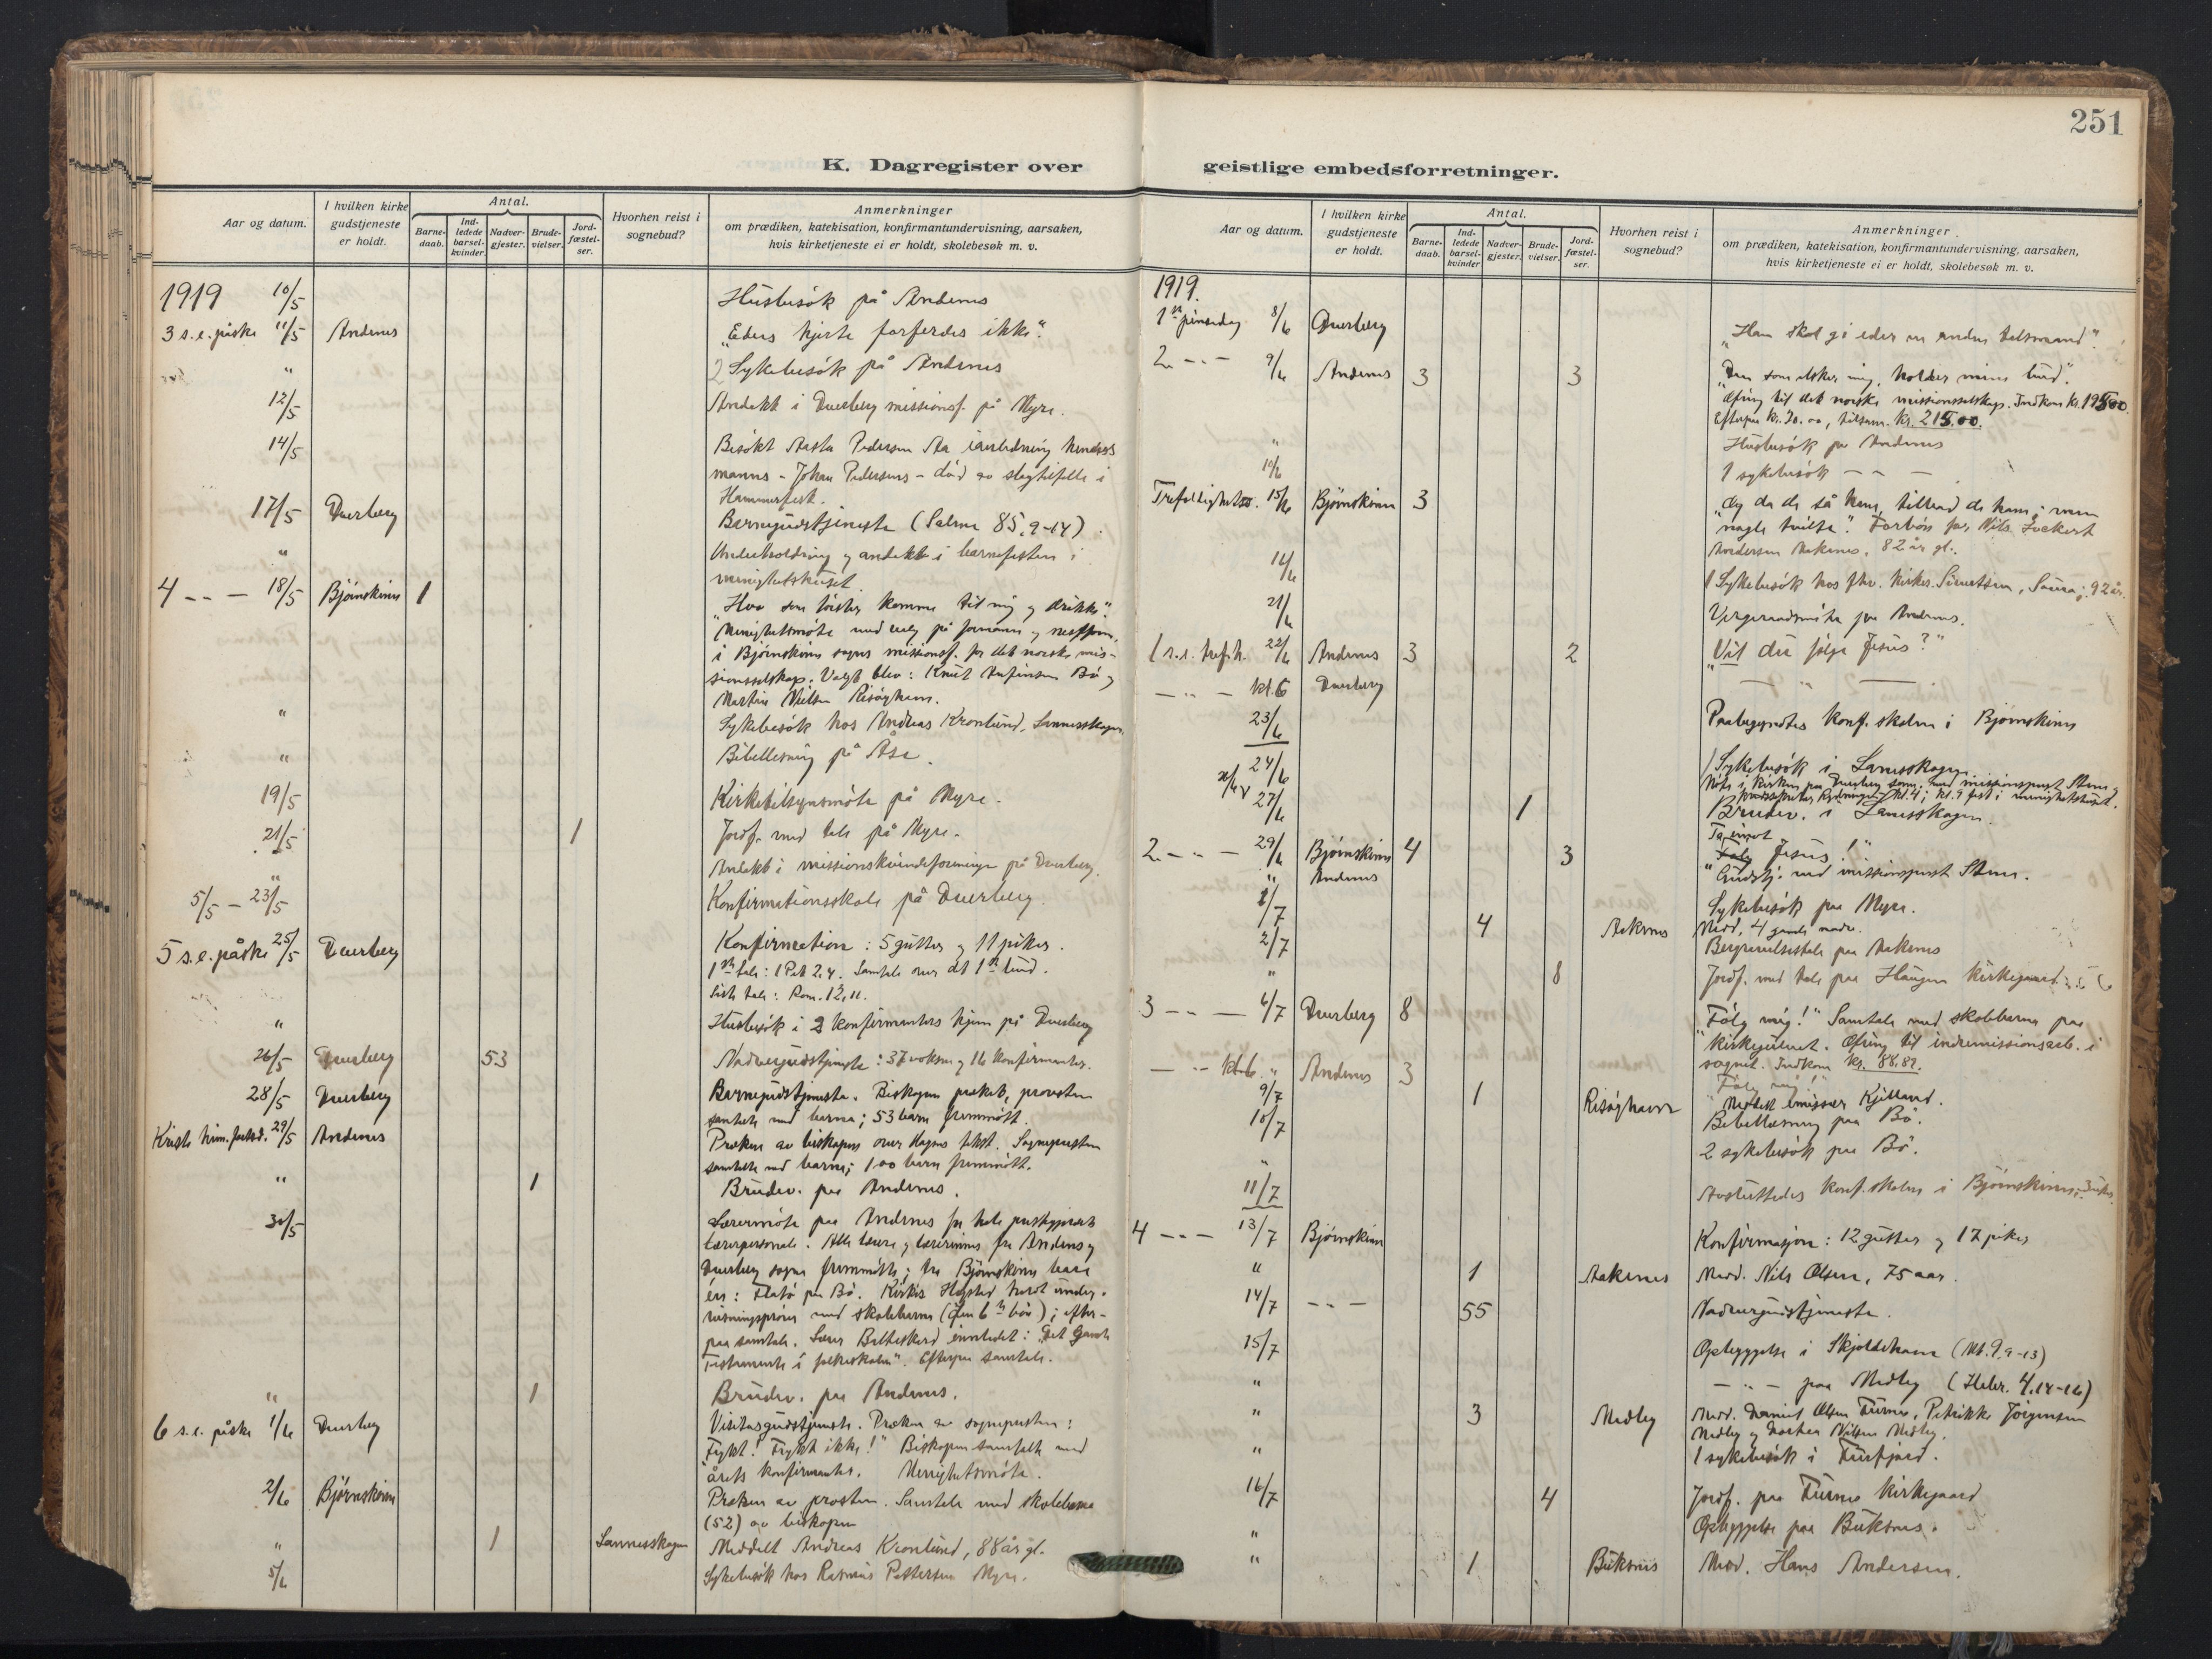 251
K. Dagregister over geistlige embedsforretninger.
Aar og datum.
I hvilken kirke gudstjeneste er holdt.
Antal.
Barne-daab.
Ind-ledede barsel-kvinder.
Nadver-gjester.
Brude-vielser.
Jord-fæstel-ser.
Hvorhen reist i sognebud?
Anmerkninger
om prædiken, katekisation, konfirmantundervisning, aarsaken,
hvis kirketjeneste ei er holdt, skolebesøk m. v.
1919 10/5 Husbesök på Andenes
3 s.e. påske 11/5 Andenes „Eders hjerte forferdes ikke".
" 2 Sykebesök på Andenes
12/5 Andakt i Dverberg missionsf. på Myre.
14/5 Besökt Pedersen i anledning hendes
manns - Johan Pedersens - död av slagtilfelle i
Hammerfest.
17/5 Dverberg Barnegudstjeneste (Salme 85, 9-14).
" Underholdning og andakt i barnefesten i
menighetshuset.
4 - " - 18/5 Bjørnskinn 1 „Hver som törster komme til mig og drikke"
Menighetsmöte med valg på formann og nestform.
i Bjørnskinn sogns missionsf. for det norske mis-
sionsselskap. Valgt blev: Knut Bö og
Martin Nielsen Risöyhavn.
" Sykebesök hos Andreas Kronlund, Lannesskogen.
" Bibellesning på Åse.
19/5 Kirketilsynsmöte på Myre.
21/5 1 Jordf. med tale på Myre.
" Andakt i missionskvindeforeningen på Dverberg.
5/5 - 23/5 Konfirmationsskole på Dverberg.
5 s.e. påske 25/5 Dverberg Konfirmation: 5 gutter og 11 piker.
1ste tale: 1 Pet 2,4. Samtale over det 1ste bud.
Siste tale: Rom. 12,11.
" Husbesök i 2 konfirmanters hjem på Dverberg
26/5 Dverberg 53 Nadvergudstjeneste: 37 voksne og 16 konfirmanter.
28/5 Dverberg Barnegudstjeneste. Biskopen prekte, provsten
samtalte med barna; 53 barn fremmött.
Kristi him.fartsd. 29/5 Andenes Preken av biskopen over dagens tekst. Sognepresten
samtalte med barna; 100 barn fremmött.
" 1 Brudev. paa Andenes.
30/5 Lærermöte paa Andenes for hele prestegjeldets
lærerpersonale. Alle lærere og lærerinner fra Andenes og
Dverberg sogne fremmötte; fra Bjørnskinn bare
én: Flatö paa Bö. Kirkes. holdt under-
visningspröver med skolebarna (den 6te bön); efter-
paa samtale. Lærer innledet: „Det Gamle
Testamente i folkeskolen". Efterpaa samtale.
" 1 Brudev. paa Andenes.
6 s.e. påske 1/6 Dverberg Visitasgudstjeneste. Preken av sognepresten:
„Frykt! Frykt ikke!" Biskopen samtalte med
årets konfirmanter. Menighetsmöte.
2/6 Bjørnskinn Preken av prosten. Samtale med skolebarna
(52) av biskopen
" 1 Lannesskogen Meddelt Andreas Kronlund, 88 år gl.
5/6 Sykebesök hos Rasmus Pettersen Myre.
Aar og datum.
I hvilken kirke gudstjeneste er holdt.
Antal.
Barne-daab.
Ind-ledede barsel-kvinder
Nadver-gjester.
Brude-vielser.
Jord-fæstel-ser.
Hvorhen reist i sognebud?
Anmerkninger
om prædiken, katekisation, konfirmantundervisning, aarsaken,
hvis kirketjeneste ei er holdt, skolebesøk m. v.
1919.
1ste pinsedag 8/6 Dverberg „Han skal gi eder en anden talsmand".
2. - " - 9/6 Andenes 3 3 „Den som elsker mig, holder mine bud".
Ofring til det norske missionsselskap. Indkom kr. 195.00.
Efterpaa kr. 20.00, tilsam. kr. 215.00.
" Husbesök paa Andenes
10/6 1 sykebesök - " -
Trefoldighetss. 15/6 Bjørnskinn 3 „Og da de så ham, tilbad de ham; men
nogle tvilte". Forbön for Nils Zockert
Andersen Aaknes, 82 år gl.
16/6 1 Sykebesök hos fhv. kirkes. Simonsen, Saura; 92 år.
21/6 Vergeraadsmöte paa Andenes.
1 s.e. tref.h. 22/6 Andenes 3 2 „Vil du fölge Jesus?"
- " - kl. 6 Dverberg - " -
23/6 Paabegyndtes konf. skolen i Bjørnskinn
24/6 1 Sykebesök i Lanesskogen
Möte i kirken paa Dverberg med missionsprest Stene og
kl. 4; kl. 9 fest i menighetshuset.
27/6 1 Brudev. i Lanesskogen.
2. - " - 29/6 Bjørnskinn 4 3 „Ta imot Jesus!"
" Andenes Gudstj. ved missionsprest Stene.
1/7 Sykebesök paa Myre.
2/7 4 Aaknes Medd. 4 gamle nadv.
Begravelsestale paa Aaknes
" 8 Jordf. med tale paa Haugen kirkegaard.
3 - " - 6/7 Dverberg 8 „Fölg mig!" Samtale med skolebarna paa
kirkegulvet. Ofring til indremissionsarb. i
sognet. Indkom kr. 88.82.
- " - kl. 6 " Andenes 3 „Fölg mig!"
9/7 1 Risöyhavn Meddelt emissær Kjelland.
10/7 Bibellæsning paa Bö.
" 2 sykebesök paa Bö.
11/7 Avsluttedes konf. skolen i Bjørnskinn
4 - " - 13/7 Bjørnskinn Konfirmasjon: 12 gutter og 17 piker
" 1 Aaknes Medd. Nils Olsen, 75 aar.
14/7 - " - 55 Nadvergudstjeneste.
15/7 Opbyggelse i Skjoldehavn (Mt. 9, 9-13)
" - " - paa Medby (Hebr. 4, 14-16)
" 3 Medby Medd. Daniel Olsen Turnes, Petrikke Jörgensen
Medby og Dorthea Nilsen Medby.
" 1 sykebesök i Kvifjord.
16/7 4 Jordf. paa Turnes kirkegaard
" Opbyggelse paa Buksnes.
" 1 Buksnes Medd. Hans Andersen.